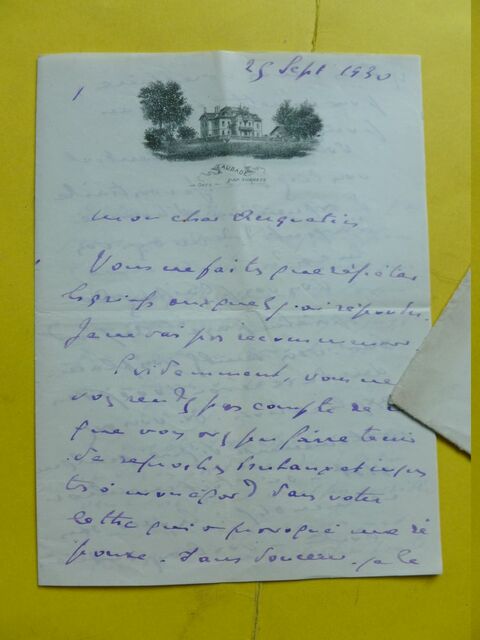 25 Sept 1930
1
mon cher
Vous ne faites que répéter
les griefs auxquels j'ai répondu.
Je ne vais pas recommencer
Evidemment, vous ne
vous rendez pas compte de ce
que vous avez pu faire tenir
de reproches et injus
tes à mon égard dans votre
lettre qui a provoqué ma ré
ponse. Sans douceur, je le